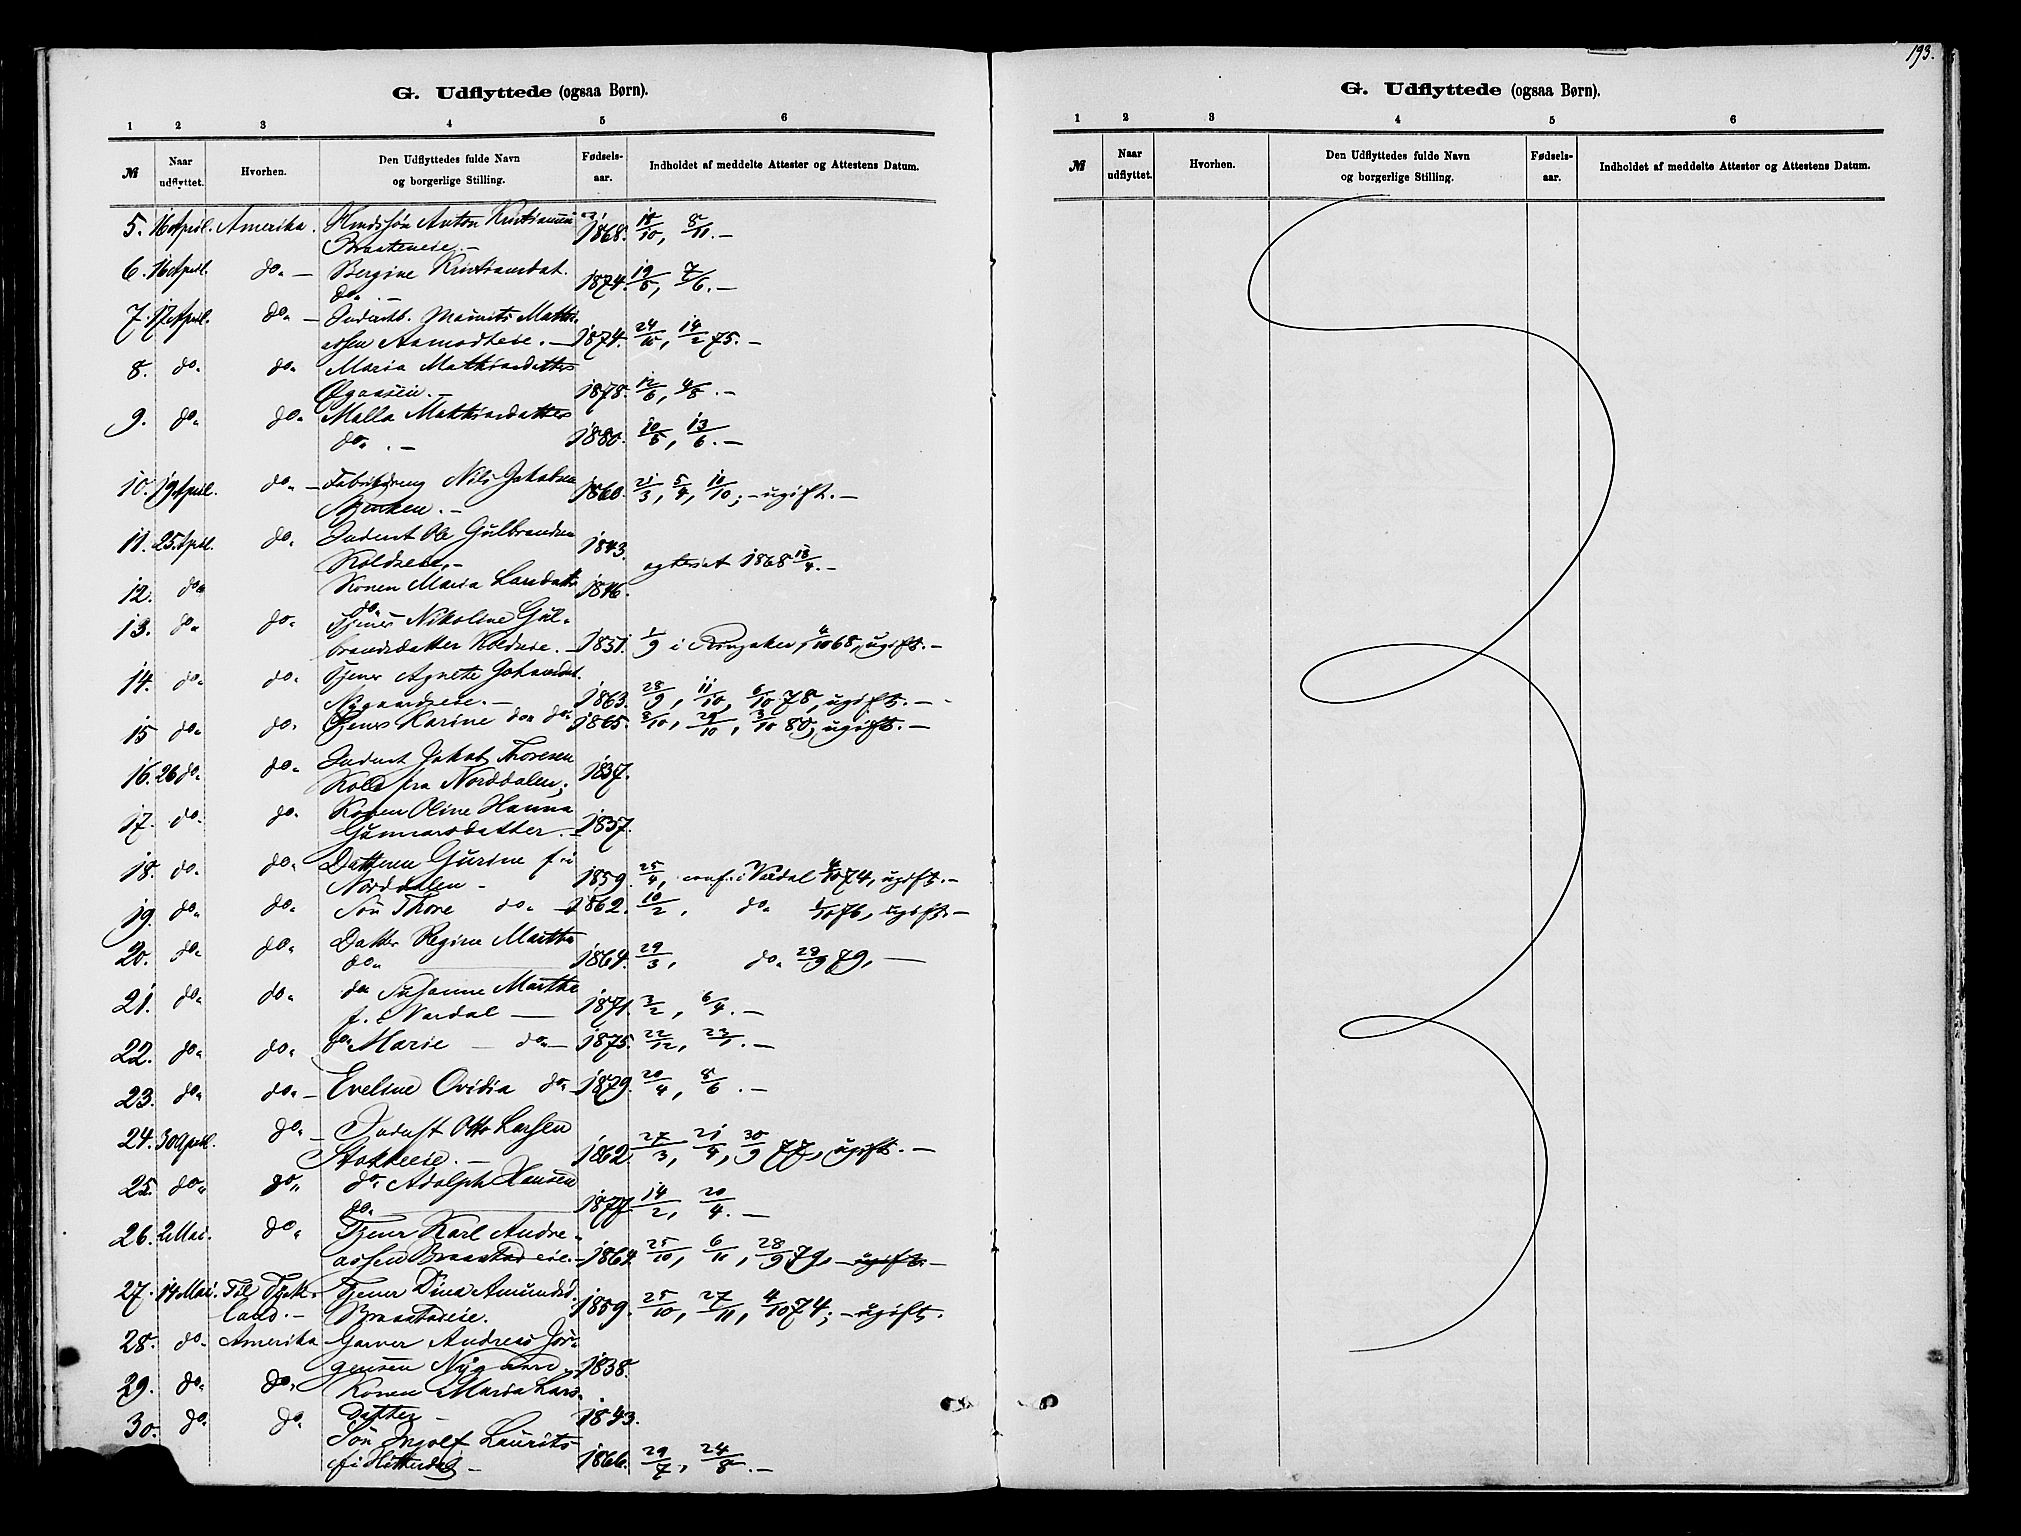 193.
G. Udflyttede (ogsaa Børn).
1 2 3 4 5 6
№ Naar udflyttet. Hvorhen. Den Udflyttedes fulde Navn og borgerlige Stilling. Fødsels-aar. Indholdet af meddelte Attester og Attestens Datum.
5. 16 April. Amerika. Anton Kristiansen
Braateneie. — 1868. 18/10, 8/11. —
6. 16 April. do. — Bergine Kristiansdat.
do. — 1874. 19/5, 7/6. —
7. 17 April. do. — Inderst. Mauritz Matthi-
assen Aamodteie. — 1874. 24/10, 14/2 75. —
8. do. do. Maria Mathiasdatter
1878. 12/6, 4/8. —
9. do. do. Malla Mathiasdatter
do. . — 1880. 10/5, 13/6. —
10. 19 April. do. — Fabrikdreng Nils Jakobsen
1860. 21/3, 5/4, 10/10; — ugift. —
11. 25 April. do. Inderst Ole Gulbrandsen
Koldseie. — 1843.
ægteviet 1868 18/4. —
12. do. Konen Maria Larsdatt.
do. 1846.
13. do. do. Tjener Nikoline Gul-
brandsdatter Koldseie. — 1851. 1/9 i Ringsaker, 4/10 68, ugift. —
14. do. do. Tjener Agnete Johansdat.
Nygaardseie. — 1863. 28/9, 11/10, 6/10 78, ugift. —
15 do. do. Tjener Karine do. do. 1865. 8/10, 29/10, 3/10 80, ugift. —
16. 26 do. do. Inderst Jakob Thoresen
Kold fra Norddalen; 1837.
17. do. do. Konen Oline Hanna
Gunnarsdatter. — 1837.
18. do. do. Datteren Gurine f. i
Norddalen — 1859. 25/4, conf. i Vardal 4/10 74, ugift. —
19. do. do. Søn Thore do. — 1862. 10/2, do. 1/10 76, ugift. —
20. do. do. Datter Regine Marthe
do. 1864. 29/3, do. 28/9 79, —
21. do. do. do. Susanne Marthe
f. i Vardal — 1871. 3/2, 6/4. —
22. do. do. do. Marie — do. — 1875. 22/12, 23/1. —
23. do. do. — Eveline Ovidia do. 1879. 20/4, 8/6. —
24. 30 April. do. — Inderst Otto Larsen
Stokkeeie. — 1862. 27/3, 21/4, 30/9 77, ugift. —
25. do. do. do. Adolph Hansen
do. 1877. 14/2, 20/4. —
26. 2 Mai. do. Tjener Karl Andre-
assen Braastadeie. — 1864. 25/10, 6/11, 28/9 79, — ugift. —
27. 14 Mai. Til Tysk-
land. — Tjener Dina Amundsd.
Braastadeie. 1859. 25/10, 27/11, 4/10 74; — ugift.
28. do. Amerika Garver Andreas Jør-
gensen Nygaard. 1838.
29. do. do. Konen Maria Lars-
datter — 1843.
30. do. do. Søn Ingolf Laurits
f. i Hitterdal — 1866. 29/7, 24/8. —
G. Udflyttede (ogsaa Børn).
1 2 3 4 5 6
№ Naar udflyttet. Hvorhen. Den Udflyttedes fulde Navn og borgerlige Stilling. Fødsels-aar. Indholdet af meddelte Attester og Attestens Datum.